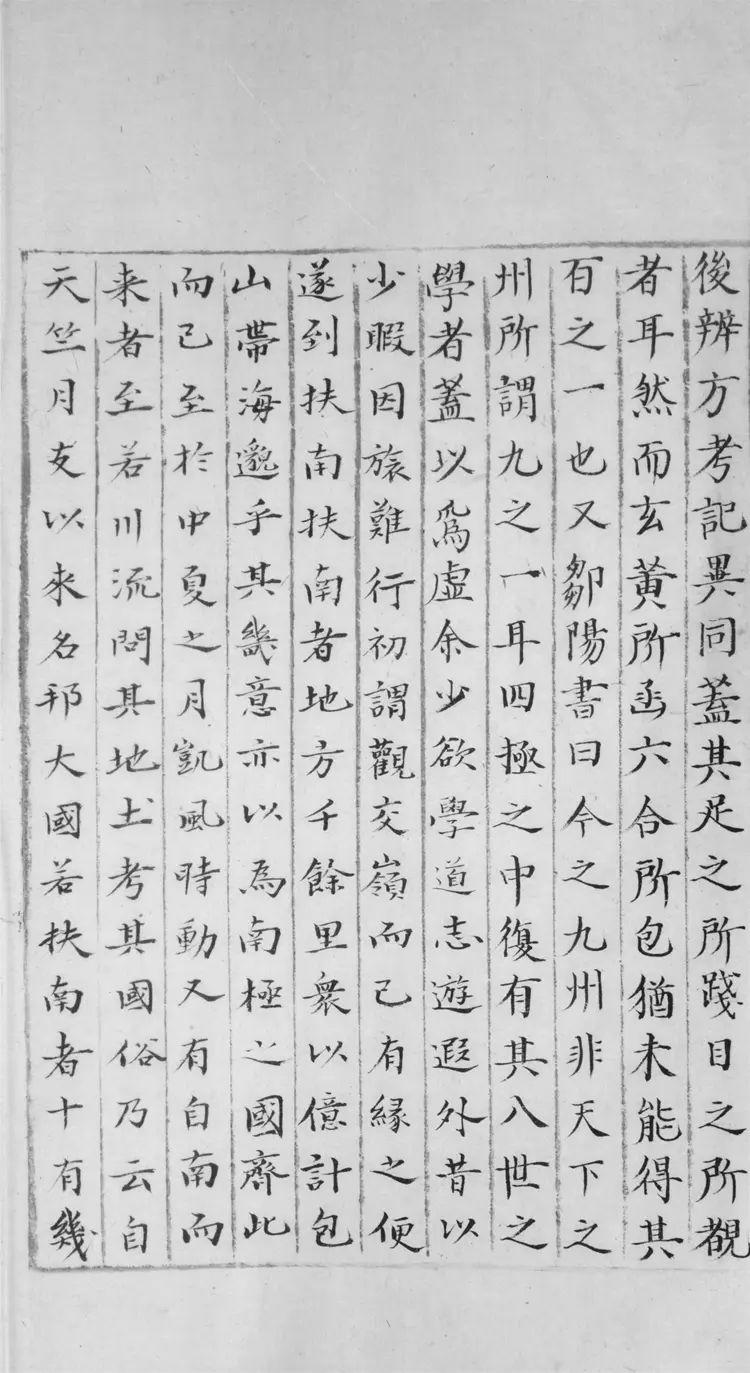 後辨方考記異同蓋其足之所踐目之所覩
者耳然而玄黄所凾六合所包猶未能得其
百之一也又鄒陽書曰今之九州非天下之
州所謂九之一耳四極之中復有其八世之
學者蓋以爲虛余少欲學道志遊遐外昔以
少暇因旅難行初謂觀交嶺而已有緣之便
遂到扶南扶南者地方千餘里衆以億計包
山帶海邈乎其幾意亦以為南極之國齊此
而已至於中夏之月凱風時動又有自南而
来者至若川流問其地土考其國俗乃云自
天竺月支以來名邦大國若扶南者十有幾